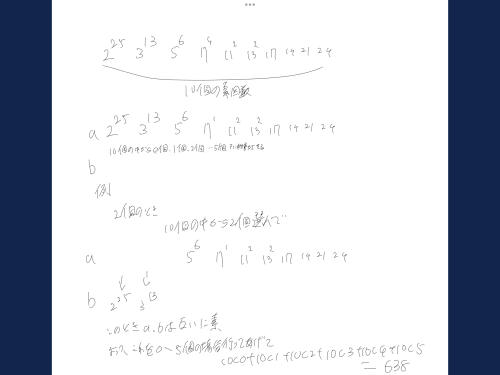 2^25 3^13 5^6 7^4 11^2 13^2 17 19 21 24
10個の素因数
a 2^25 3^13 5^6 7^1 11^2 13^2 17 19 21 24
10個の中から0個、1個、2個 … 5個
b
例
2個のとき
10個の中から2個選んで
a 5^6 7^1 11^2 13^2 17 19 21 24
b 2^25 3^13
このとき a,bは互いに素
これを0~5個の場合行ってあげて
10C0+10C1+10C2+10C3+10C4+10C5
= 638